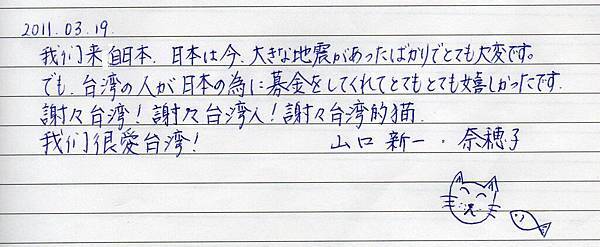 2011.03.19.
我们来自日本. 日本は今、大きな地震があったばかりでとても大変です。
でも、台湾の人が日本の為に募金をしてくれてとてもとても嬉しかったです.
謝々台湾! 謝々台湾人! 謝々台湾的猫.
我们很愛台湾! 山口 新一 · 奈穂子